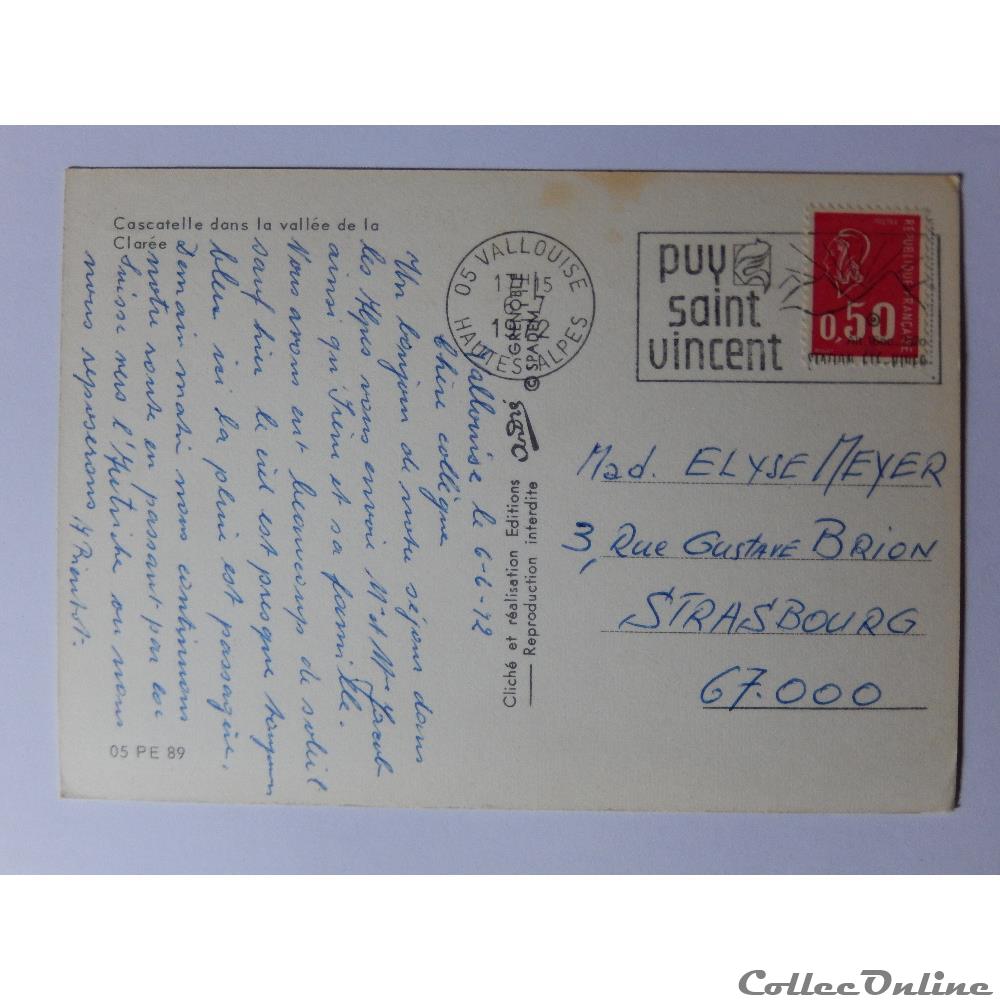 Cascatelle dans la vallée de la
Clarée
Vallouise le 6-6-72
Chère collègue
Un bonjour de notre séjour dans
les Alpes vous envoie Mr et Mme Jacob
ainsi qu' Irène et sa famille.
Nous avons eut beaucoup de soleil
sauf hier le ciel est presque toujours
bleu ici la pluie est passagère,
Demain matin nous continuons
notre route en passant par la
Suisse vers l'Autriche ou nous
nous reposerons
05 PE 89
Cliché et réalisation Editions
Reproduction interdite
GRENOBLE
© SPADEM
05 VALLOUISE
HAUTES ALPES
puy
saint
vincent
REPUBLIQUE FRANÇAISE
0,50
Mad. ELYSE MEYER
3, Rue GUSTAVE BRION
STRASBOURG
67.000
CollecOnline